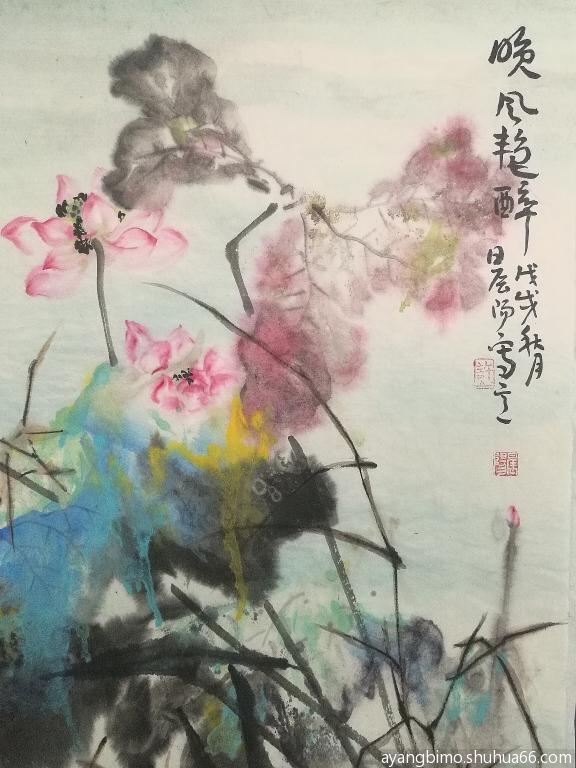 晚风艳醉
戊戌秋月
日辰阳写意
ayangbimo.shuhua66.com